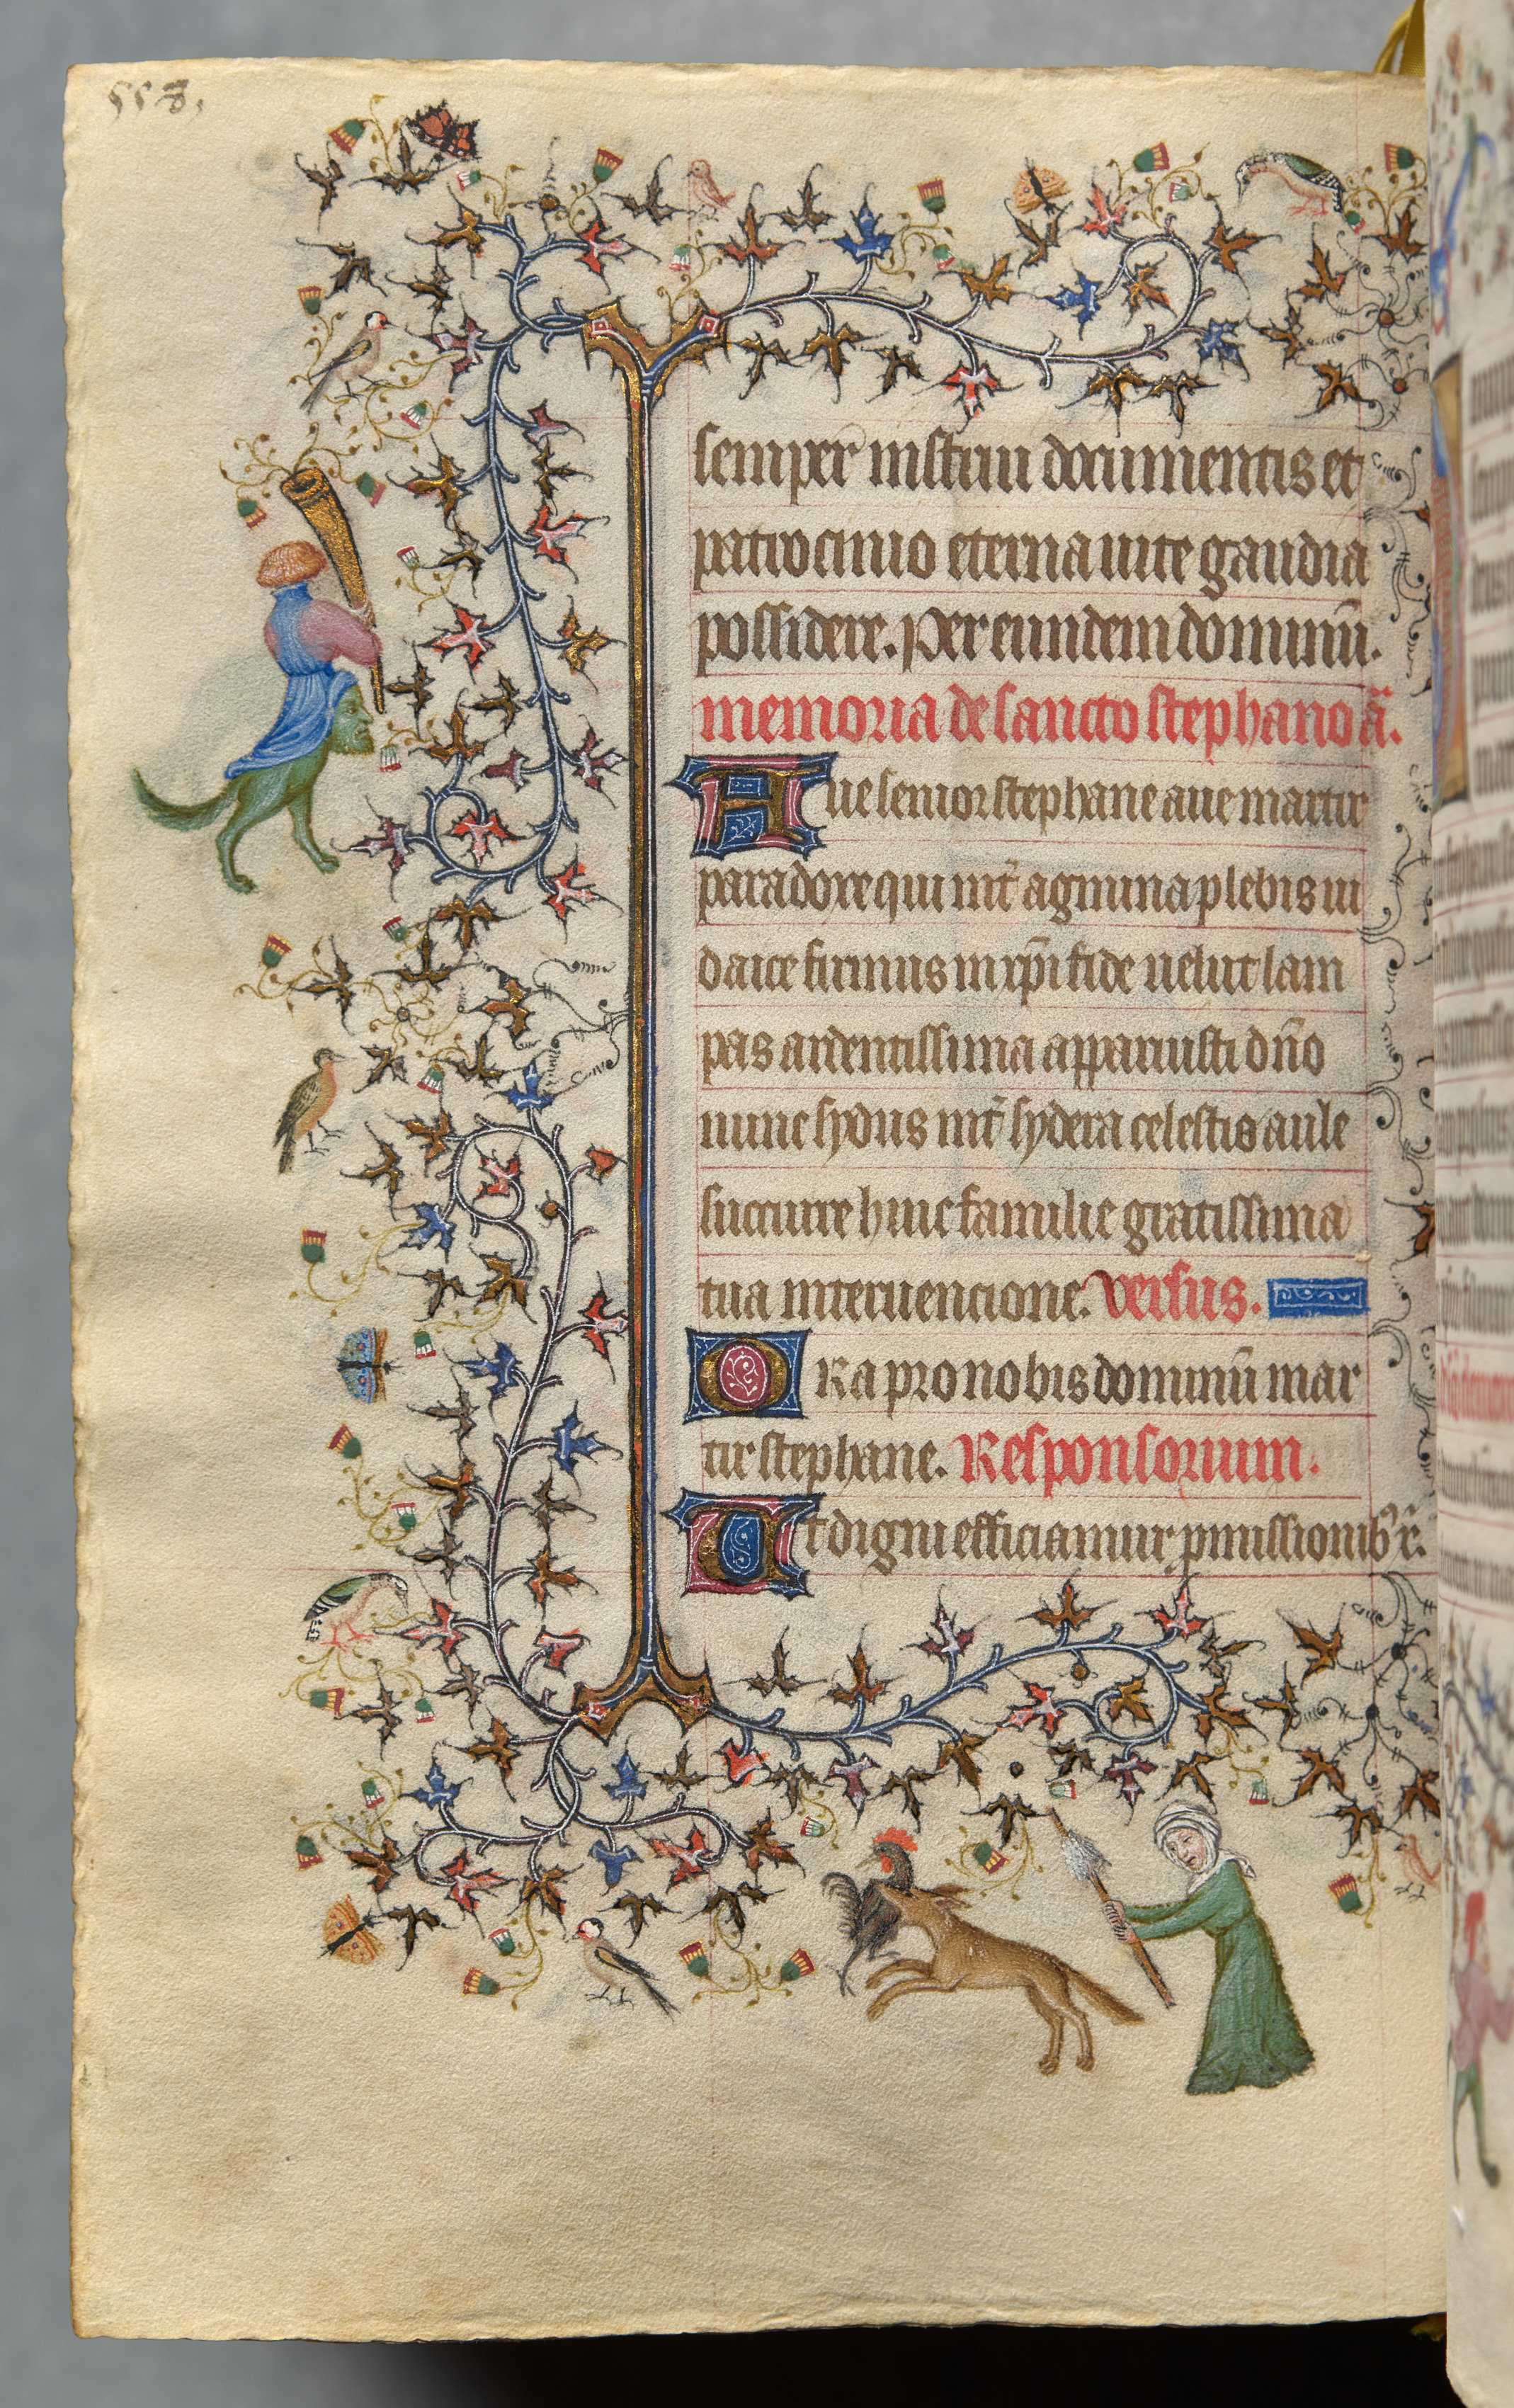 558.
semper instrui documentis et
patrocinio eterna uite gaudia
possidere. Per eundem dominū.
memoria de sancto stephano ā.
Aue senior stephane aue martir
paradoxe qui int̄ agmina plebis iu
daice firmus in xp̄i fide uelut lam
pas ardentissima apparuisti dn̄o
nunc sydus int̄ sydera celestis aule
succurre huic familie gratissima
tua interuencione. Versus.
ORa pro nobis dominū mar
tir stephane. Responsorium.
Ut digni efficiamur